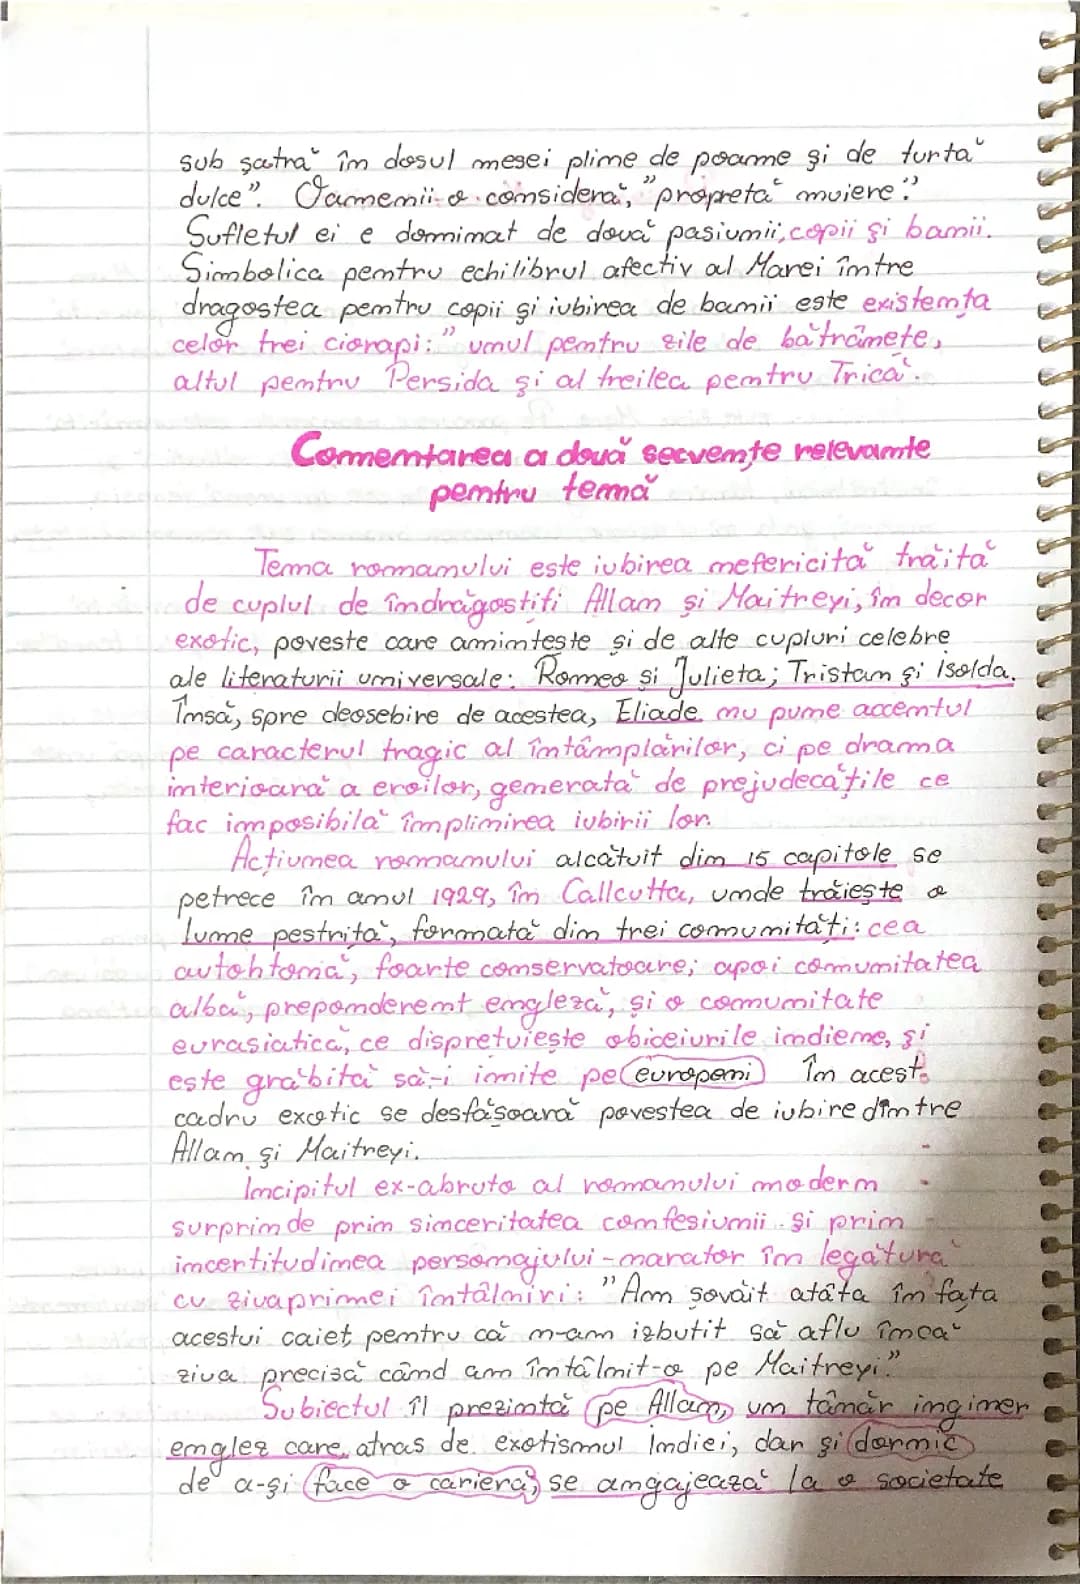 sub șatră în dosul mesei pline de poame și de turtă
dulce". Oamenii o consideră, "propretă muiere".
Sufletul ei e dominat de două pasiunii, copii și banii.
Simbolica pentru echilibrul afectiv al Marei între
dragostea pentru copii și iubirea de banii este existența
celor trei ciorapi: "unul pentru zile de bătrânețe,
altul pentru Persida și al treilea pentru Trică.
Comentarea a două secvențe relevante
pentru temă
Tema romanului este iubirea nefericită trăită
de cuplul de îndrăgostiți Allan și Maitreyi, în decor
exotic, poveste care amintește și de alte cupluri celebre
ale literaturii universale: Romeo și Julieta; Tristan și Isolda.
Însă, spre deosebire de acestea, Eliade nu pune accentul
pe caracterul tragic al întâmplărilor, ci pe drama
interioară a eroilor, generată de prejudecățile ce
fac imposibilă împlinirea iubirii lor.
Acțiunea romanului alcătuit din 15 capitole se
petrece în anul 1929, în Callcutta, unde trăiește o
lume pestriță, formată din trei comunități: cea
autohtonă, foarte conservatoare; apoi comunitatea
albă, preponderent engleză, și o comunitate
eurasiatică, ce disprețuiește obiceiurile indiene, și
este grăbită să-i imite pe europeni În acest
cadru exotic se desfășoară povestea de iubire dintre
Allan și Maitreyi.
Incipitul ex-abruto al romanului modern
surprinde prin sinceritatea confesiunii și prin
incertitudinea personajului-narator în legătură
cu ziua primei întâlniri: "Am șovăit atâta în fața
acestui caiet, pentru că n-am izbutit să aflu încă
ziua precisă când am întâlnit-o pe Maitreyi."
Subiectul îl prezintă pe Allan, un tânăr inginer
englez care, atras de exotismul Indiei, dar și dornic
de a-și face o carieră, se angajează la o societate